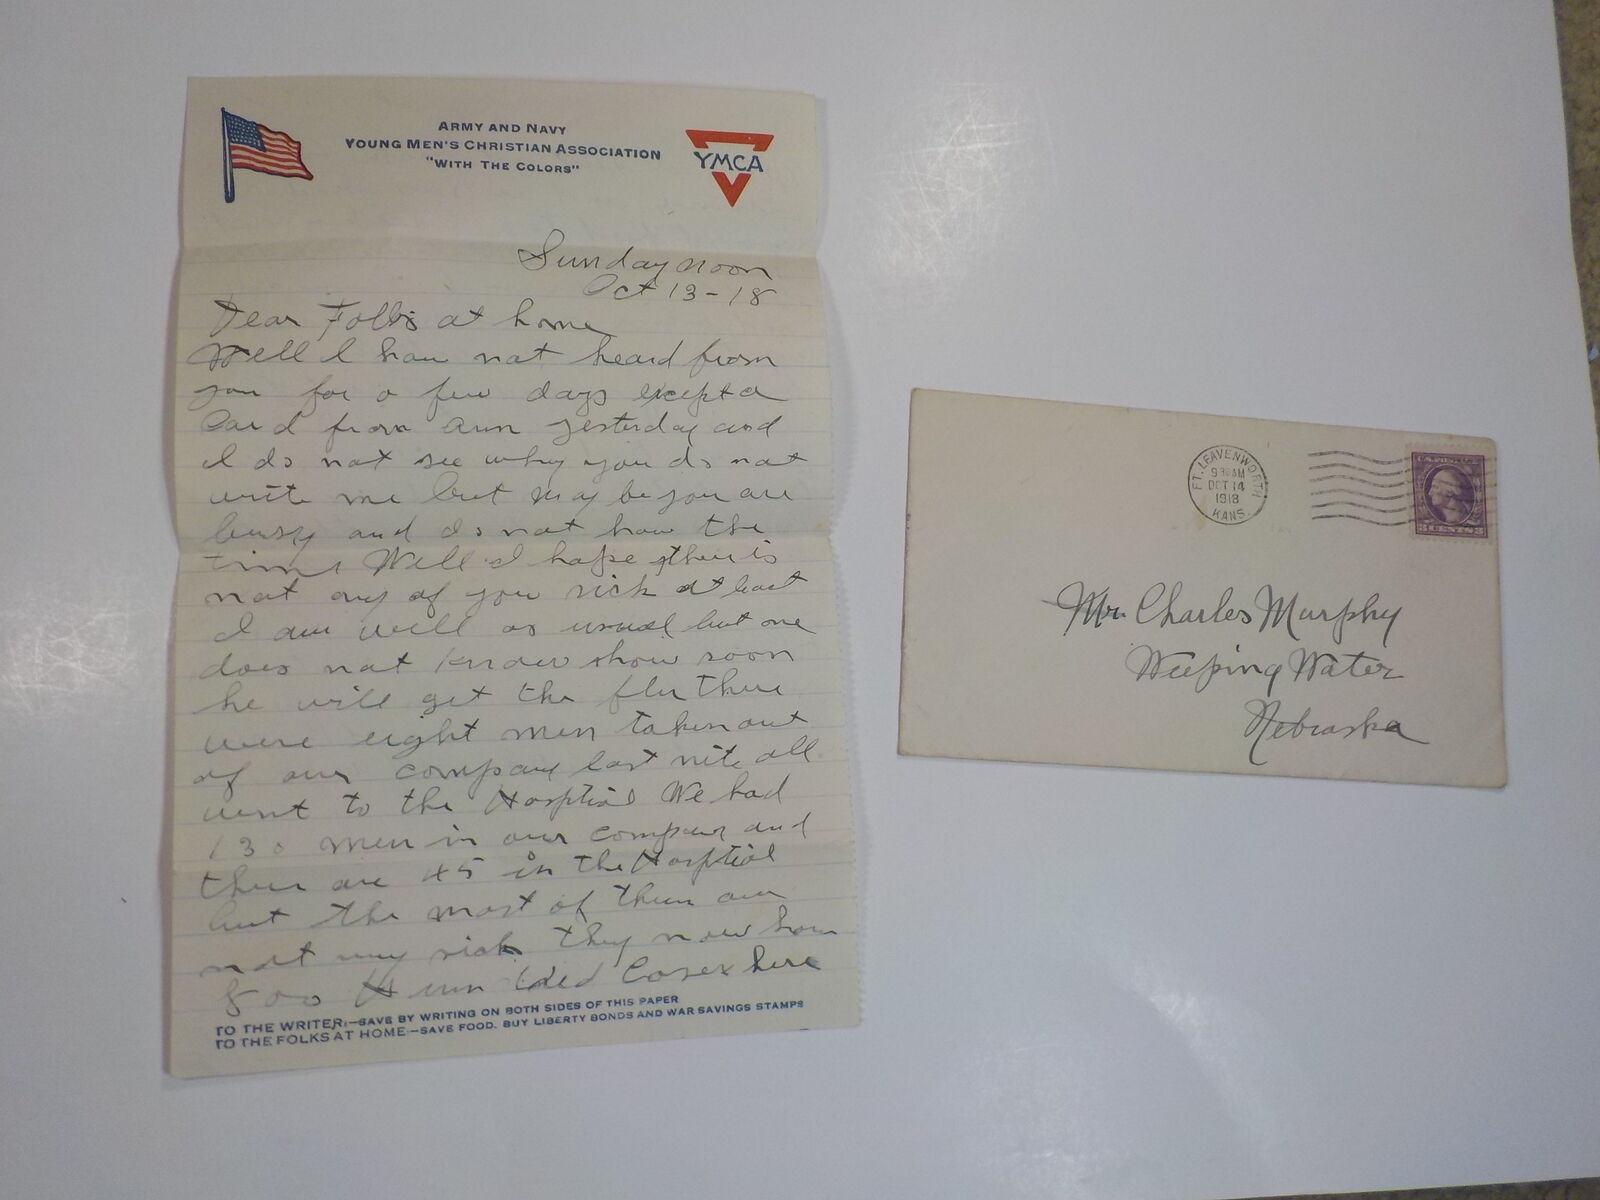 ARMY AND NAVY
YOUNG MEN'S CHRISTIAN ASSOCIATION
"WITH THE COLORS"
YMCA
Sunday noon
Oct 13-18
Dear Folks at home
Well I have not heard from
you for a few days except a
Card from Ann yesterday and
I do not see why you do not
write me but may be you are
busy and do not have the
time Well I hope ther is
not any of you sick at least
I am well as usual but one
does not know how soon
he will get the flu there
were eight men taken out
of our company last nite all
went to the Hospital We had
130 men in our company and
ther are 45 in the Hospital
but the most of them are
not very sick they now have
800 Hundred Cases here
TO THE WRITER:—SAVE BY WRITING ON BOTH SIDES OF THIS PAPER
TO THE FOLKS AT HOME—SAVE FOOD. BUY LIBERTY BONDS AND WAR SAVINGS STAMPS
FT. LEAVENWORTH
9 30 AM
OCT 14
1918
KANS.
U.S. POSTAGE
3 CENTS 3
Mr. Charles Murphy
Weeping Water
Nebraska